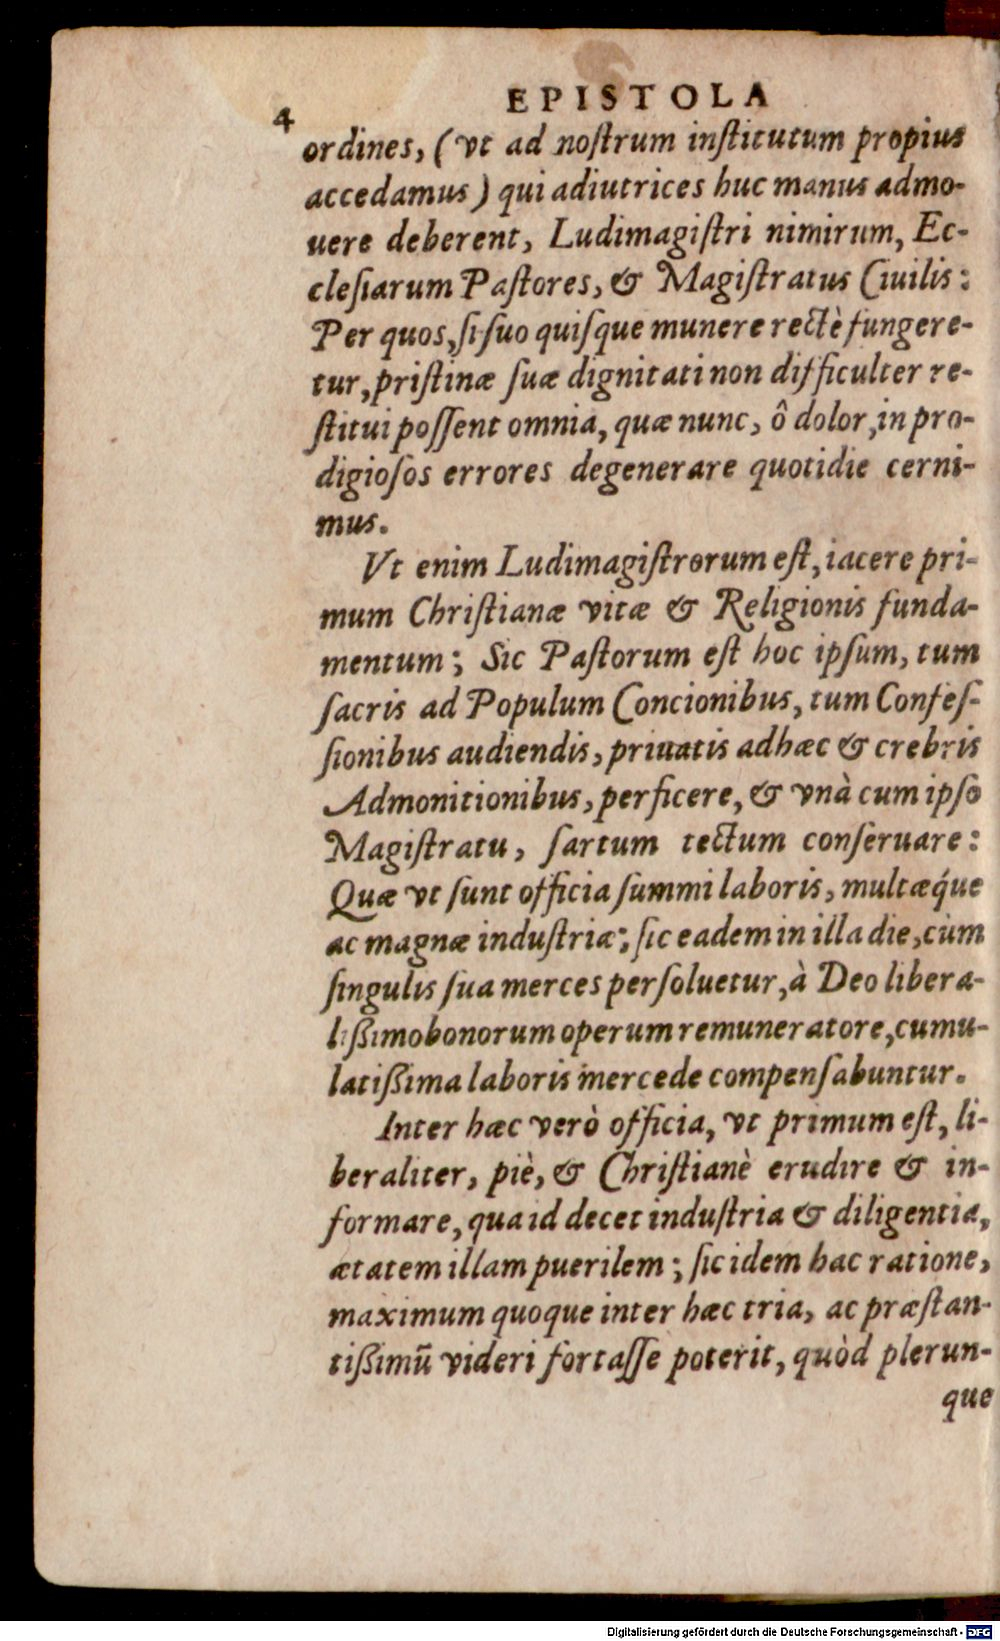 4 EPISTOLA
ordines, (vt ad noſtrum inſtitutum propius
accedamus) qui adiutrices huc manus admo-
uere deberent, Ludimagiſtri nimirum, Ec-
cleſiarum Paſtores, & Magiſtratus Ciuilis:
Per quos, ſi ſuo quiſque munere rectè fungere-
tur, priſtinæ ſuæ dignitati non difficulter re-
ſtitui poſſent omnia, quæ nunc, ô dolor, in pro-
digioſos errores degenerare quotidie cerni-
mus.
Vt enim Ludimagiſtrorum eſt, iacere pri-
mum Chriſtianæ vitæ & Religionis funda-
mentum; Sic Paſtorum eſt hoc ipſum, tum
ſacris ad Populum Concionibus, tum Confeſ-
ſionibus audiendis, priuatis adhæc & crebris
Admonitionibus, perficere, & vnà cum ipſo
Magiſtratu, ſartum tectum conſeruare:
Quæ vt ſunt officia ſummi laboris, multæq́ue
ac magnæ induſtriæ; ſic eadem in illa die, cùm
ſingulis ſua merces perſoluetur, à Deo libera-
lißimo bonorum operum remuneratore, cumu-
latißima laboris mercede compenſabuntur.
Inter hæc verò officia, vt primum eſt, li-
beraliter, piè, & Chriſtianè erudire & in-
formare, qua id decet induſtria & diligentia,
ætatem illam puerilem; ſic idem hac ratione,
maximum quoque inter hæc tria, ac præſtan-
tißimū videri fortaſſe poterit, quòd plerun-
que
Digitalisierung gefördert durch die Deutsche Forschungsgemeinschaft - DFG